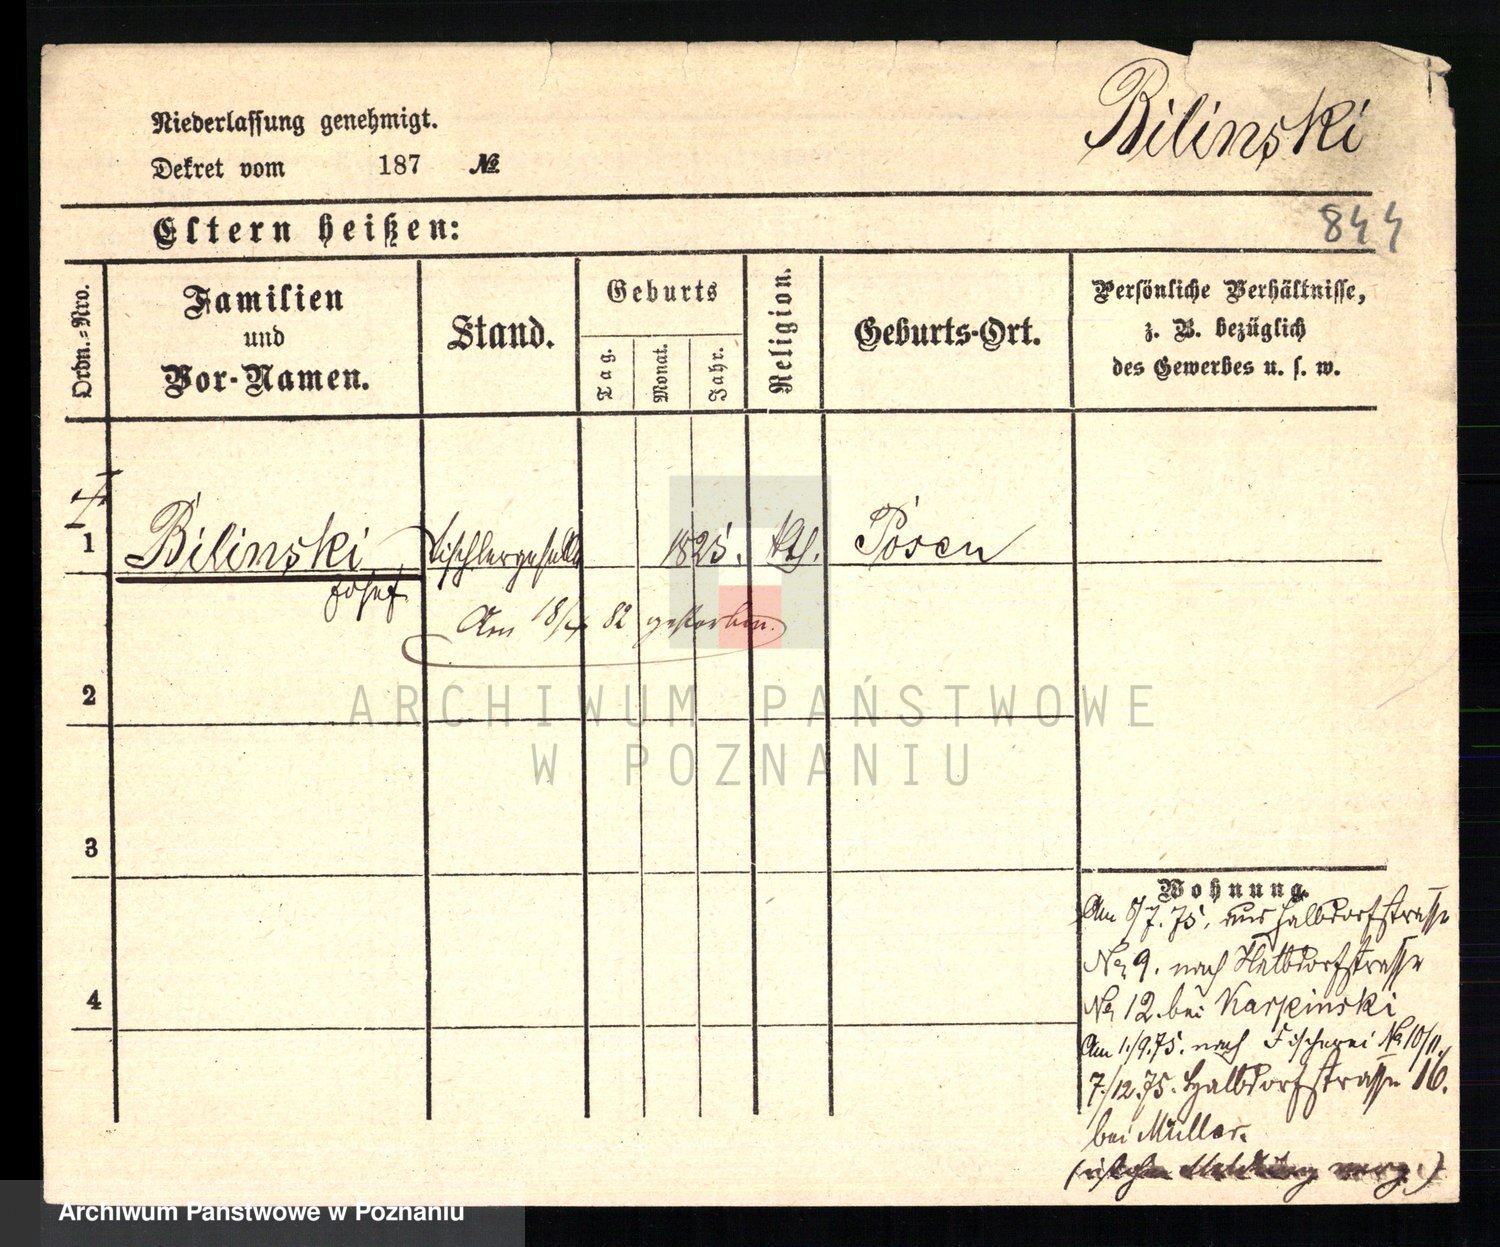 Bilinski
Niederlassung genehmigt.
Dekret vom 187 №
Eltern heißen:
844
Ordn.=Nro.
Familien
und
Vor-Namen.
Stand.
Geburts
Tag.
Monat.
Jahr.
Religion.
Geburts-Ort.
Persönliche Verhältnisse,
z. B. bezüglich
des Gewerbes u. s. w.
1 Bilinski Tischlergeselle 1825. kth. Posen
Josef
Am 18/4 82 gestorben.
2
3
4
Wohnung.
Am 8/7. 75. aus Halbdorfstrasse
No 9. nach Halbdorfstrasse
No 12 bei Karpinski
Am 1./9.75. nach Fischerei No 10/11.
7./12.75. Halbdorfstrasse 16.
bei Müller.
ARCHIWUM PAŃSTWOWE
W POZNANIU
Archiwum Państwowe w Poznaniu